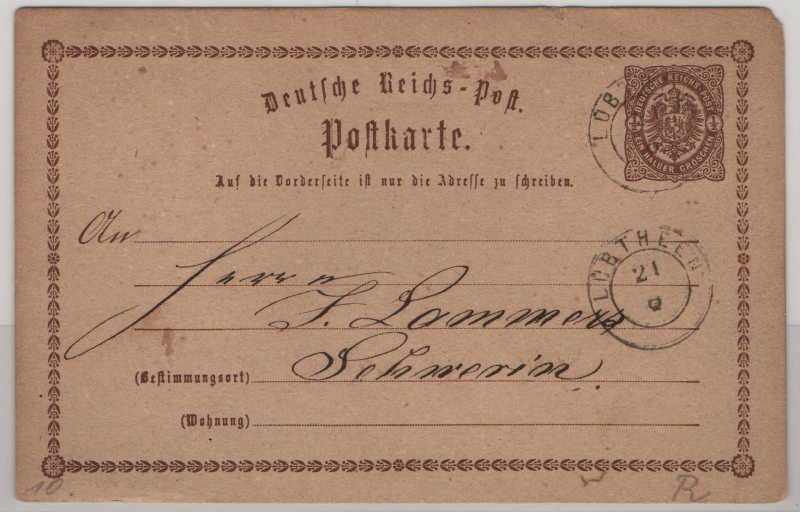 Deutsche Reichs-Post.
Postkarte.
DEUTSCHE REICHS-POST
EIN HALBER GROSCHEN
LÜB
Auf die Vorderseite ist nur die Adresse zu schreiben.
An
Herrn
LÜBTHEEN
21
9
F. Lammers
(Bestimmungsort) Schwerin.
(Wohnung)
10.
R